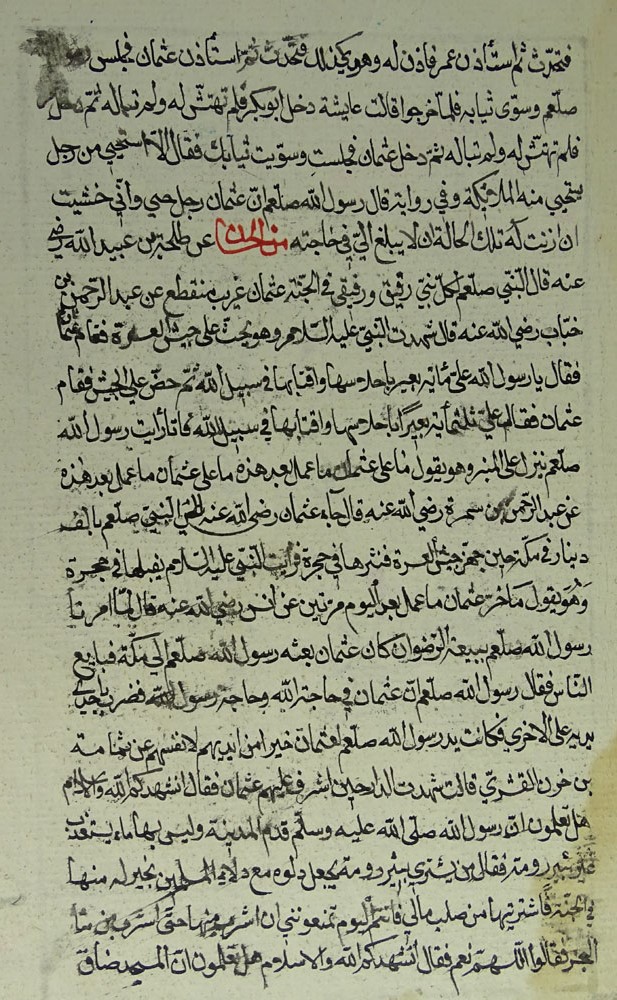 فتحدّث ثم استأذن عمر فاذن له وهو كذلك فتحدّث ثمّ استأذن عثمان فجلس رسول
صلّعم وسوّى ثيابه فلمّا خرجوا قالت عايشة دخل ابو بكر فلم تهتشّ له ولم تباله ثمّ دخل
فلم تهتشّ له ولم تباله ثمّ دخل عثمان فجلستَ وسوّيت ثيابك فقال الا استحيي من رجل
يستحيي منه الملائكة وفي رواية قال رسول الله صلعم انّ عثمان رجل حيي وانّي خشيت
ان اذنت له تلك الحالة ان لا يبلغ اليّ في حاجته من الحسان عن طلحة بن عبيد الله رضي
عنه قال النّبي صلّعم لكلّ نبيّ رفيق ورفيقي في الجنّة عثمان غريب منقطع عن عبد الرّحمن بن
خبّاب رضي الله عنه قال شهدت النّبيّ عليه السّلام وهو يحثّ على جيش العسرة فقام عثمان
فقال يا رسول الله عليّ مائة بعير باحلاسها واقتابها في سبيل الله ثمّ حضّ على الجيش فقام
عثمان فقال عليّ ثلثمأية بعيرًا باحلاسها واقتابها في سبيل الله فانا رأيت رسول الله
صلعم ينزل على المنبر وهو يقول ما على عثمان ما عمل بعد هذه ما على عثمان ما عمل بعد هذه
عن عبد الرّحمن بن سمرة رضي الله عنه قال جاء عثمان رضي الله عنه الى النّبيّ صلعم بالف
دينار في مكّه حين جهّز جيش العسرة فنثرها في حجرة فرأيت النّبي عليه السّلام يقبلها في حجرة
وَهُوَ يقول ما ضرّ عثمان ما عمل بعد اليوم مرّتين عن انس رضي الله عنه قال لمّا امرنا
رسول الله صلعم ببيعة الرّضوان كان عثمان بعثه رسول الله صلّعم الى مكّة فبايع
النّاس فقال رسول الله صلعم انّ عثمان في حاجة الله وحاجة رسول الله فضرب باحدى
يديه على الاخرى فكانت يد رسول الله صلعم لعثمان خيرا من ايديهم لانفسهم عن ثمامة
بن حزن القشريّ قالت شهدت الدار حين اشرف عليهم عثمان فقال انشهدكم الله والاسلام
هل تعلمون انّ رسول الله صلّى الله عليه وسلّم قدم المدينة وليس بها ماء يستعذب
غير بئر رومة فقال من يشتري بئر رومة يجعل دلوه مع دلاء المسلمين بخير له منها
في الجنّة فاشتريتها من صلب مالي فانتم اليوم تمنعونني ان اشرب منها حتّى اشرب من ماء
البحر فقالوا اللّهمّ نعم فقال انشهدكم الله والاسلام هل تعلمون انّ المسجد ضاق